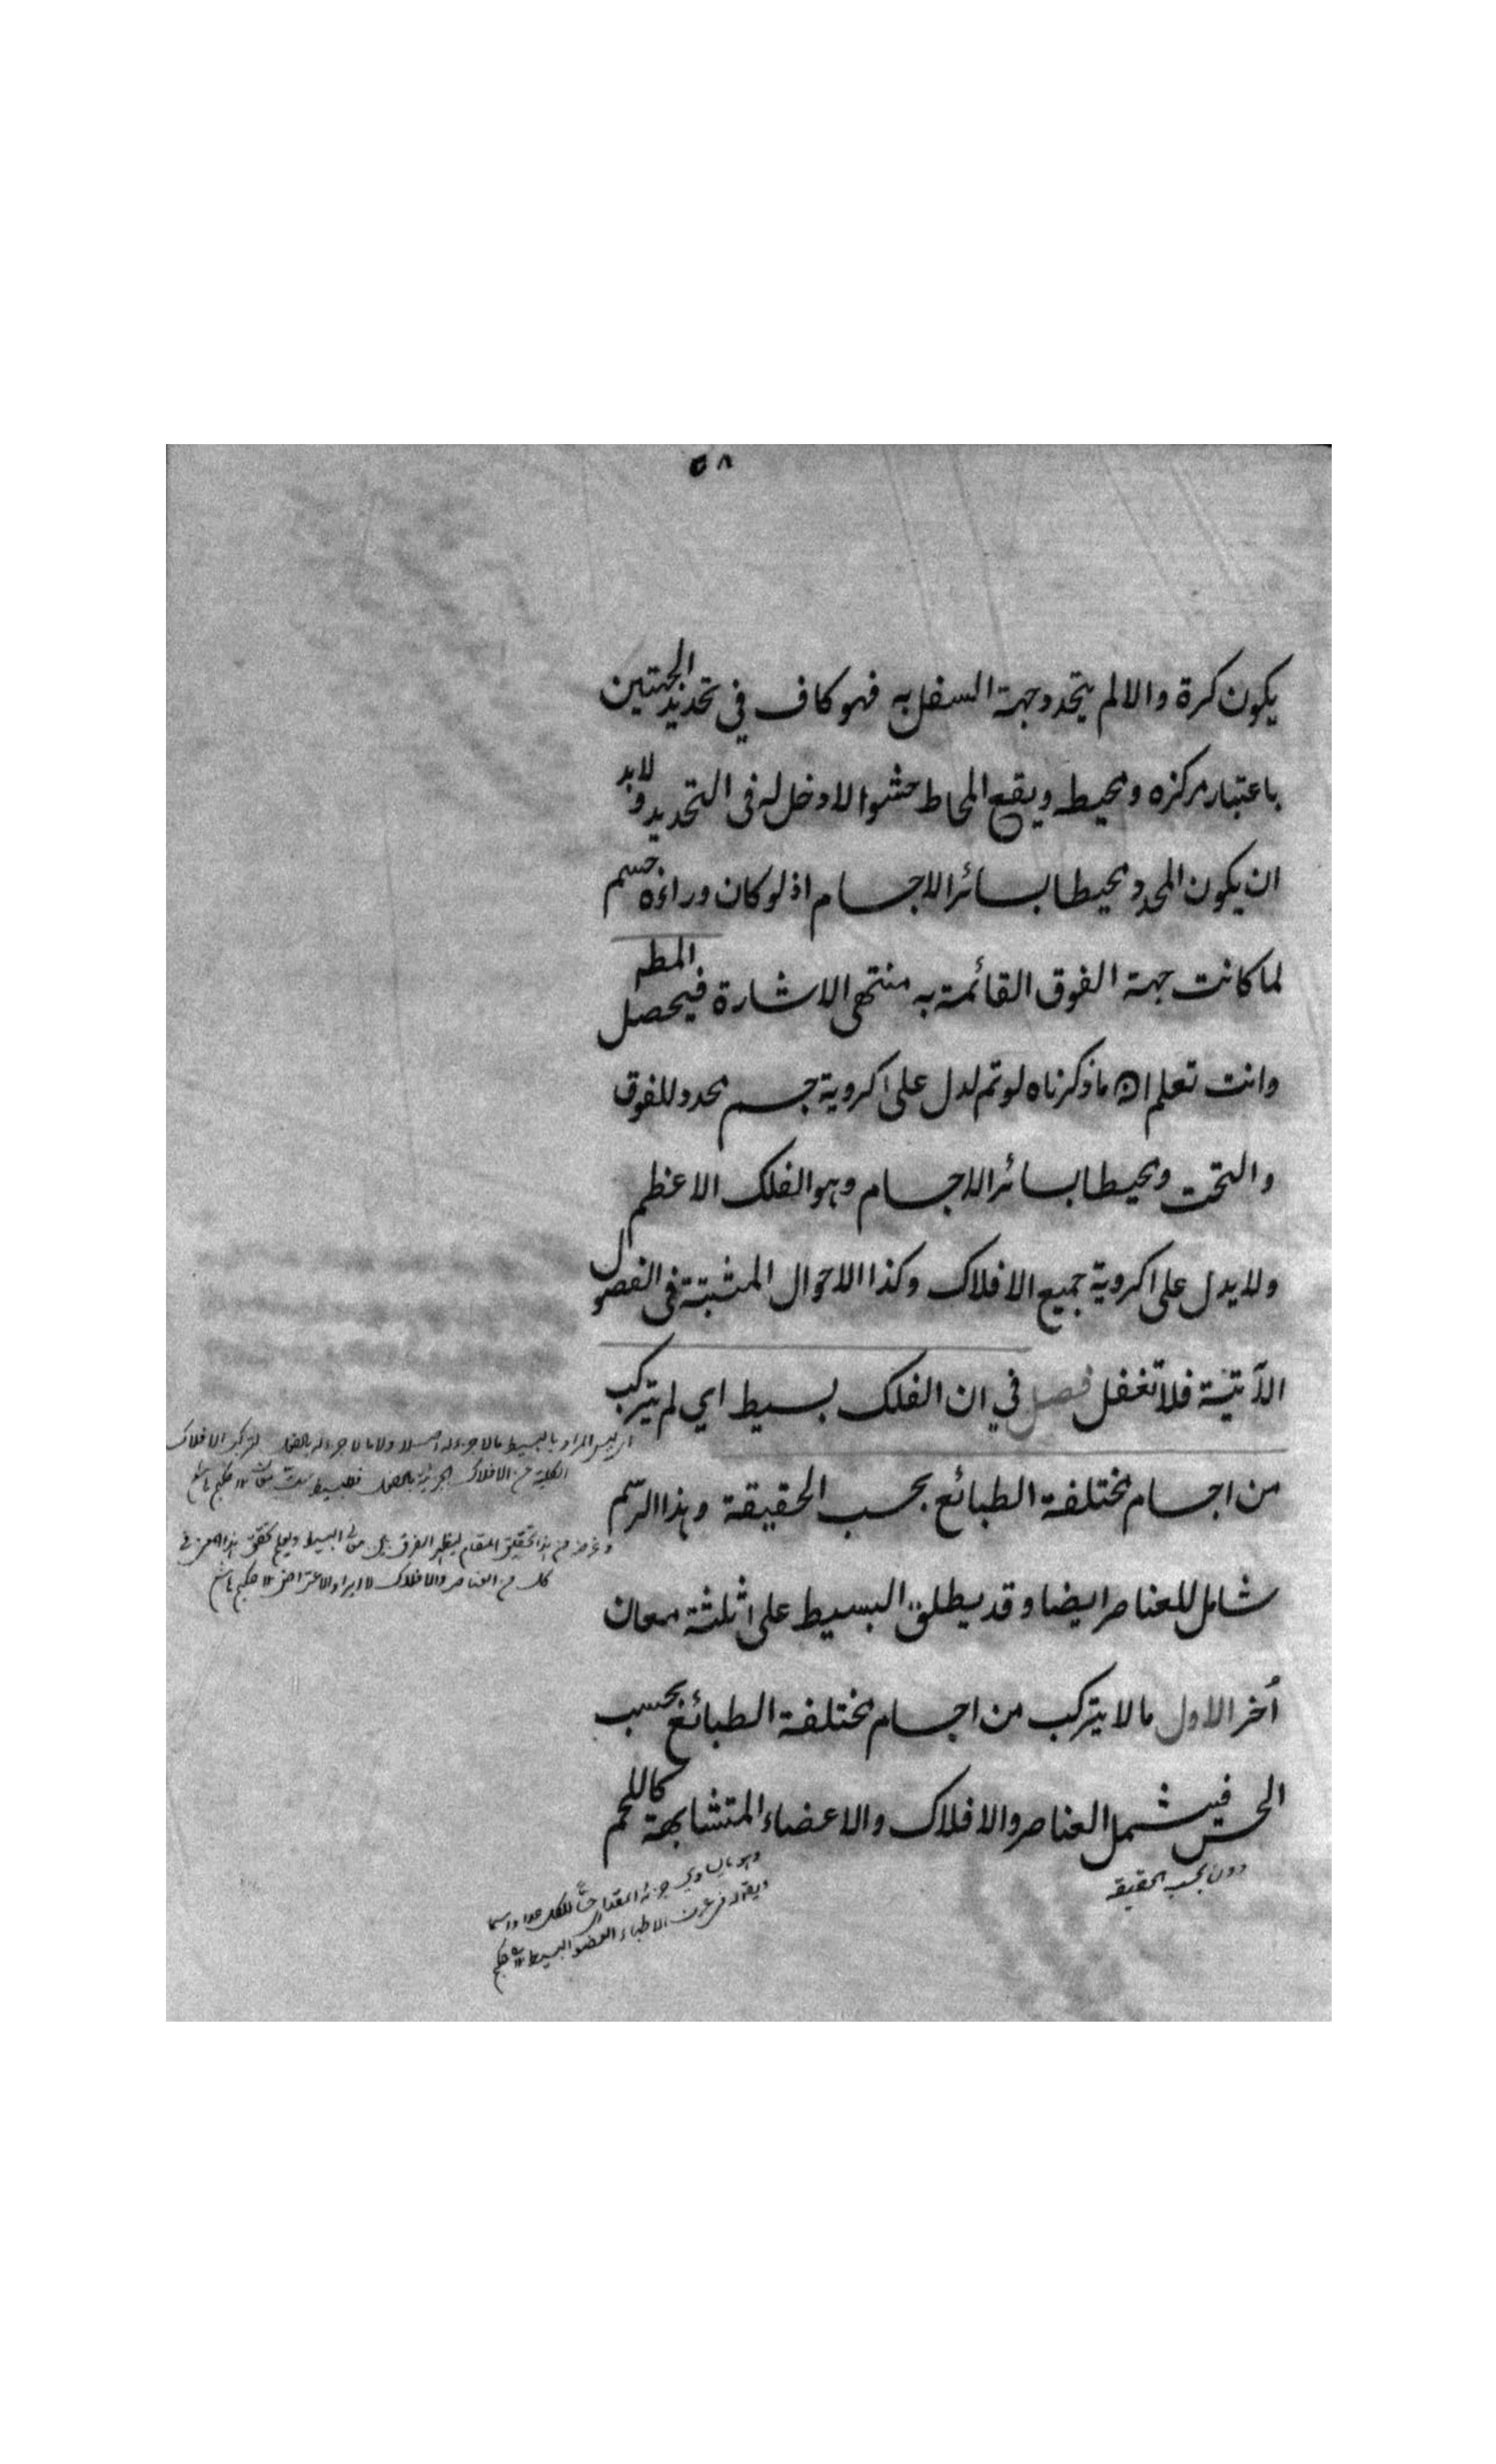 ٥٨
يكون كرة والا لم يتحدد جهة السفل به فهو كاف في تحديد الجهتين
باعتبار مركزه ومحيطه ويقع المحاط حشوا لا دخل له فى التحديد ولا بد
ان يكون المحدد محيطا بسائر الاجسام اذ لو كان وراءه جسم
لما كانت جهة الفوق القائمة به منتهى الاشارة فيحصل المطم
وانت تعلم ان ما ذكرناه لو تم لدل على كروية جسم محدد للفوق
والتحت ومحيطا بسائر الاجسام وهو الفلك الاعظم
ولا يدل على كروية جميع الافلاك وكذا الاحوال المثبتة فى الفصول
الآتية فلا تغفل فصل في ان الفلك بسيط اي لم يتركب
من اجسام مختلفة الطبائع بحسب الحقيقة وهذا الرسم
شامل للعناصر ايضا وقد يطلق البسيط على ثلثة معان
أخر الاول ما لا يتركب من اجسام مختلفة الطبائع بحسب
الحس فيشمل العناصر والافلاك والاعضاء المتشابهة كاللحم
دون بحسب الحقيقة
ليس المراد بالبسيط ما لا جزء له اصلا ولا ما لا جزء له بالفعل لتركب الافلاك
الكلية من الافلاك الجزئية بالفعل
من هذا تحقيق المقام ليظهر الفرق بين معانى البسيط ويعلم تحقق هذا المعنى في
كل من العناصر والافلاك لا ايراد الاعتراض
وهو ما يساوي جزئه المقداري للكل حدا واسما
ويقال له في عرف الاطباء العضو البسيط